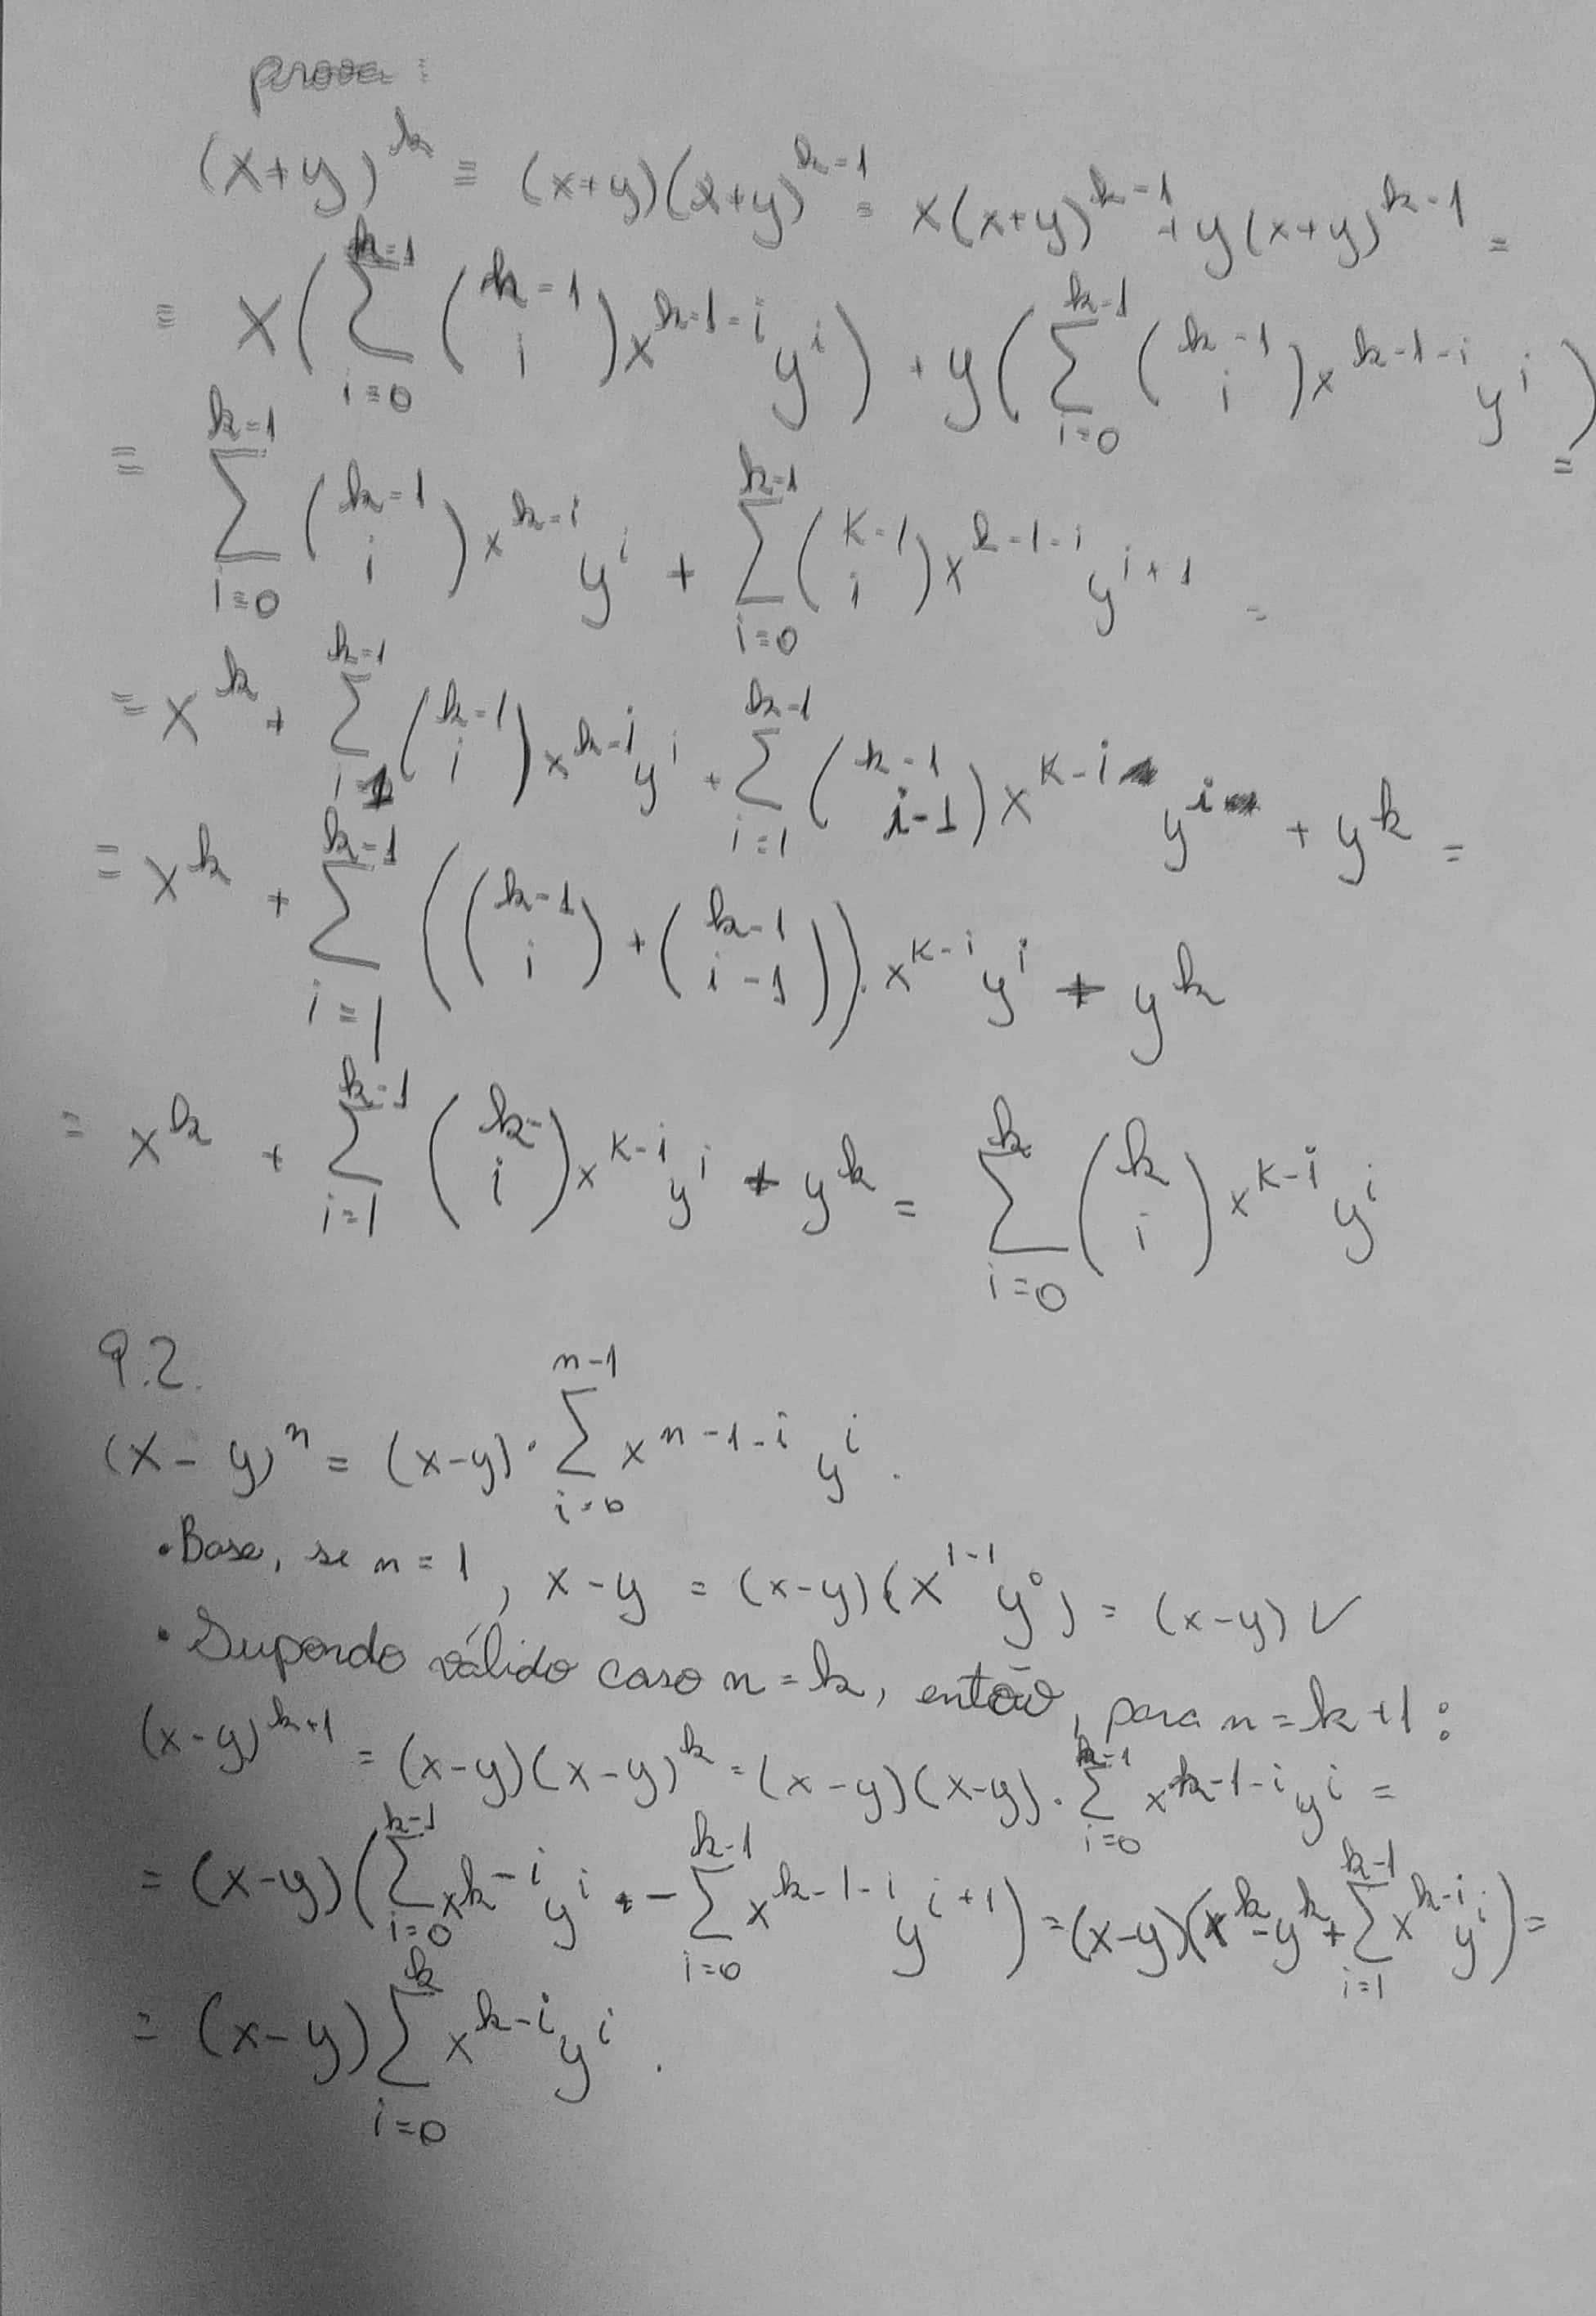 prova:
(x+y)^k = (x+y)(x+y)^{k-1} = x(x+y)^{k-1} + y(x+y)^{k-1} =
= x(∑_{i=0}^{k-1} (k-1 i) x^{k-1-i} y^i) + y(∑_{i=0}^{k-1} (k-1 i) x^{k-1-i} y^i) =
= ∑_{i=0}^{k-1} (k-1 i) x^{k-i} y^i + ∑_{i=0}^{k-1} (k-1 i) x^{k-1-i} y^{i+1} =
= x^k + ∑_{i=1}^{k-1} (k-1 i) x^{k-i} y^i + ∑_{i=1}^{k-1} (k-1 i-1) x^{k-i} y^i + y^k =
= x^k + ∑_{i=1}^{k-1} ((k-1 i) + (k-1 i-1)) · x^{k-i} y^i + y^k
= x^k + ∑_{i=1}^{k-1} (k i) x^{k-i} y^i + y^k = ∑_{i=0}^{k} (k i) x^{k-i} y^i
9.2.
(x-y)^n = (x-y) · ∑_{i=0}^{n-1} x^{n-1-i} y^i.
• Base, se n=1, x-y = (x-y)(x^{1-1} y^0) = (x-y) ✓
• Supondo válido caso n=k, então, para n=k+1:
(x-y)^{k+1} = (x-y)(x-y)^k = (x-y)(x-y) · ∑_{i=0}^{k-1} x^{k-1-i} y^i =
= (x-y)(∑_{i=0}^{k-1} x^{k-i} y^i - ∑_{i=0}^{k-1} x^{k-1-i} y^{i+1}) = (x-y)(x^k - y^k + ∑_{i=1}^{k-1} x^{k-i} y^i) =
= (x-y) ∑_{i=0}^{k} x^{k-i} y^i.